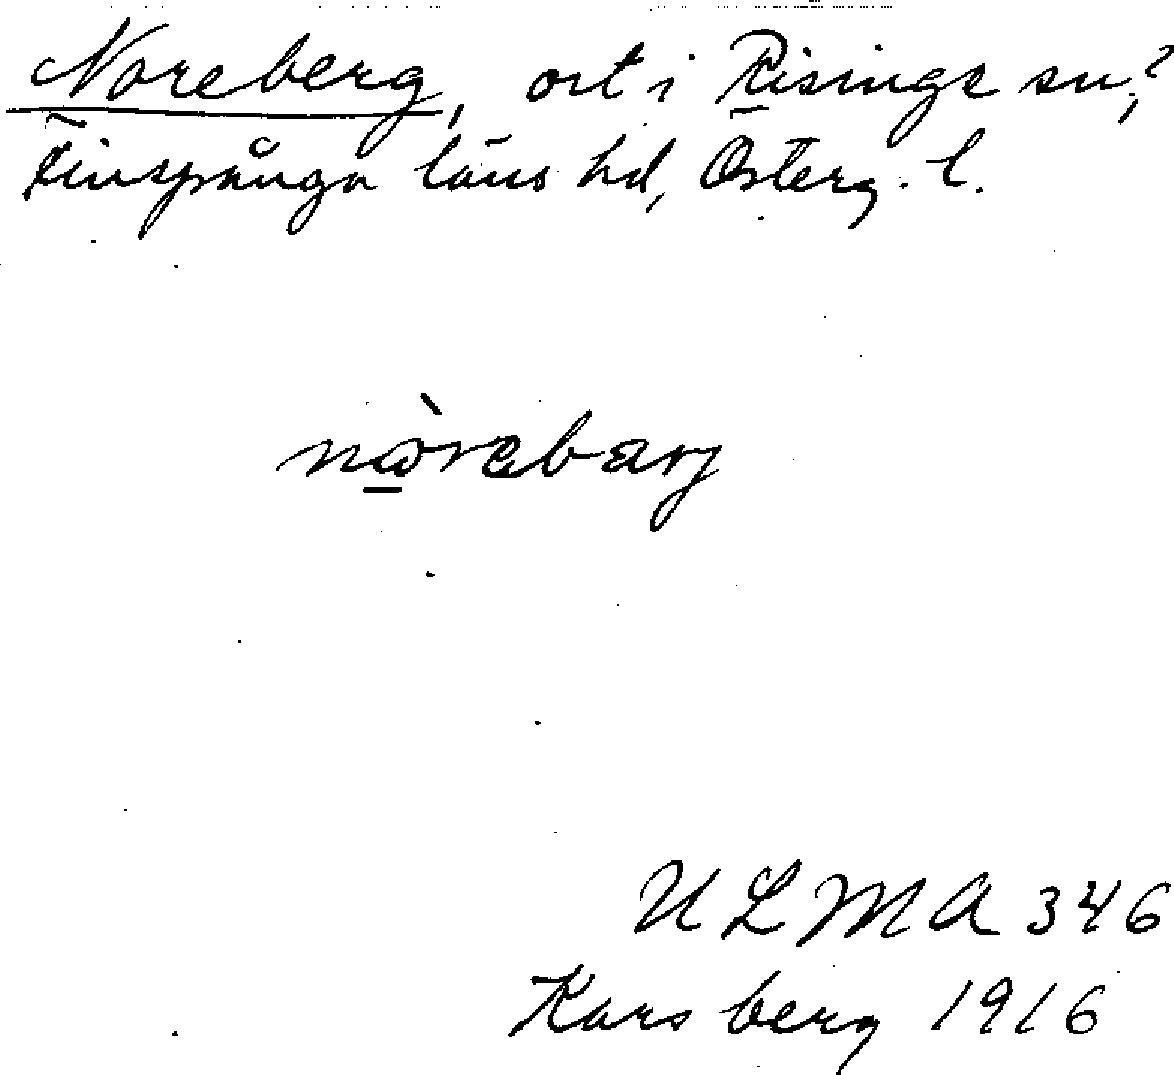 Noreberg, ort i Risinge sn,?
Finspånga läns hd, Österg. l.
nòrebarj
ULMA 346
Karsberg 1916